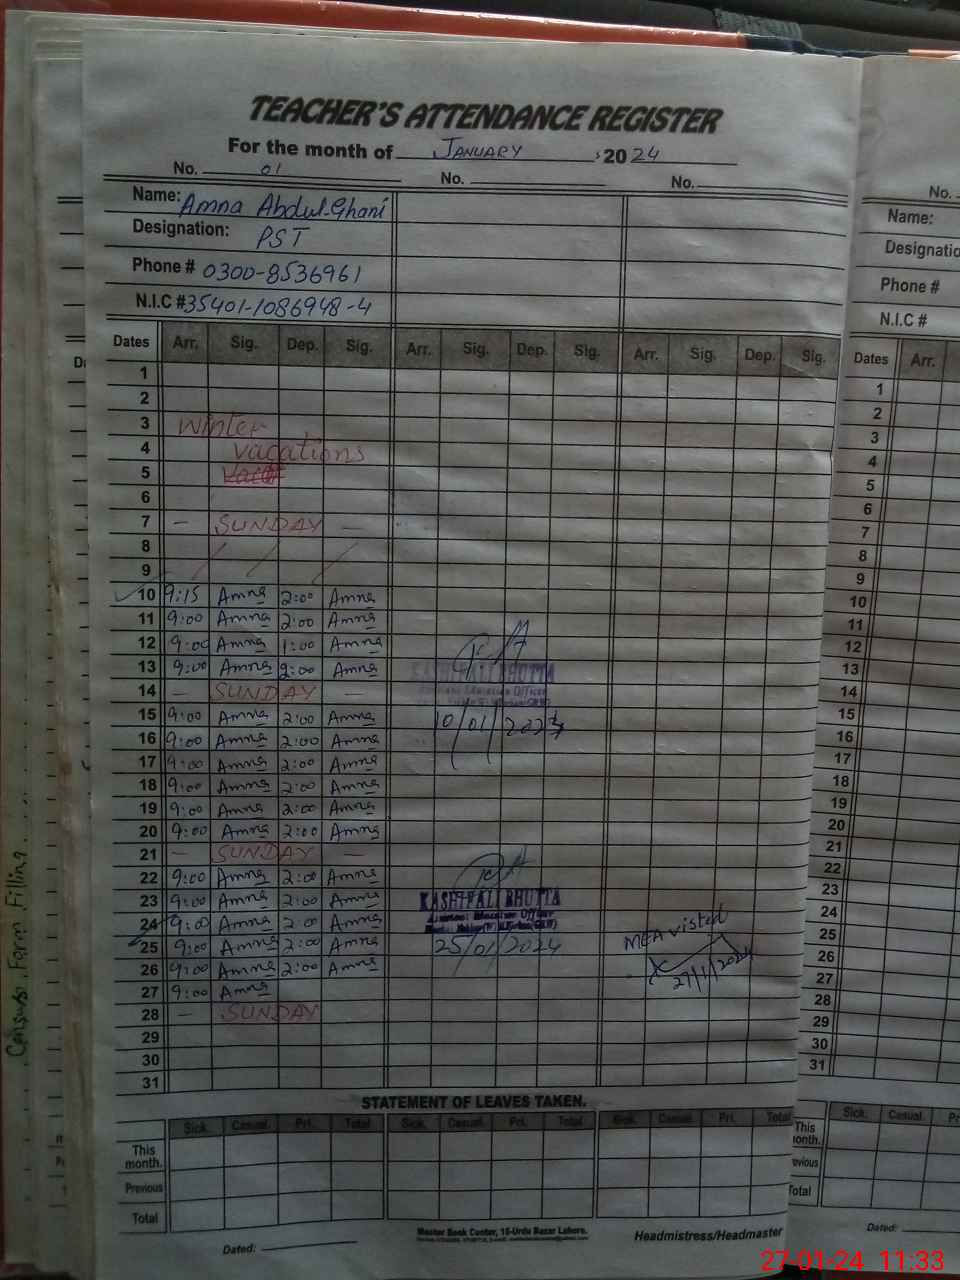 TEACHER'S ATTENDANCE REGISTER
For the month of JANUARY 2024
No. 01 No. No.
Name: Amna Abdul-Ghani
Designation: PST
Phone # 0300-8536961
N.I.C # 35401-1086948-4
Dates Arr. Sig. Dep. Sig. Arr. Sig. Dep. Sig. Arr. Sig. Dep. Sig.
1
2
3 Winter
4 vacations
5
6
7 — SUNDAY —
8
9
10 9:15 Amna 2:00 Amna
11 9:00 Amna 2:00 Amna
12 9:00 Amna 1:00 Amna
13 9:00 Amna 2:00 Amna KASHIF ALI BHUTTA
14 — SUNDAY — Education Officer
15 9:00 Amna 2:00 Amna 10/01/2024
16 9:00 Amna 2:00 Amna
17 9:00 Amna 2:00 Amna
18 9:00 Amna 2:00 Amna
19 9:00 Amna 2:00 Amna
20 9:00 Amna 2:00 Amna
21 — SUNDAY —
22 9:00 Amna 2:00 Amna
23 9:00 Amna 2:00 Amna KASHIF ALI BHUTTA
24 9:00 Amna 2:00 Amna Assistant Education Officer
25 9:00 Amna 2:00 Amna 25/01/2024 MEA visted
26 9:00 Amna 2:00 Amna 27/1/2024
27 9:00 Amna
28 — SUNDAY
29
30
31
STATEMENT OF LEAVES TAKEN.
Sick. Casual. Pri. Total Sick. Casual. Pri. Total Sick. Casual. Pri. Total
This month.
Previous
Total
Master Book Center, 15-Urdu Bazar Lahore.
Dated: Headmistress/Headmaster
No.
Name:
Designatio
Phone #
N.I.C #
Dates Arr.
1
2
3
4
5
6
7
8
9
10
11
12
13
14
15
16
17
18
19
20
21
22
23
24
25
26
27
28
29
30
31
Sick. Casual. Pr
This
month.
Total
Dated:
Form Filling
27-01-24 11:33